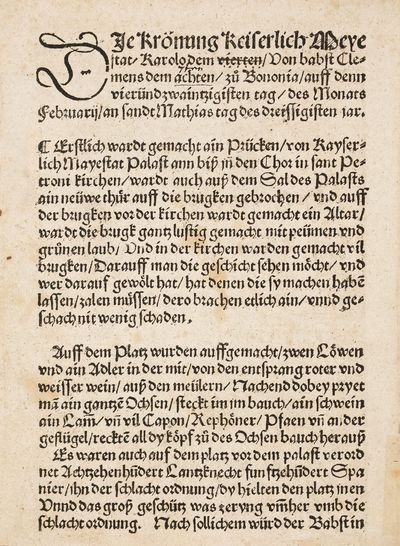 DJe Krönung Keiserlich Meye
stat/Karolo dem vierten/Von babst Cle-
mens dem achten/zů Bononia/auff denn
vierůndzwaintzigisten tag/des Monats
Februarij/an sandt Mathias tag des dreissigisten jar.
C Erstlich wardt gemacht ain Prücken/von Kayser-
lich Mayestat Palast ann biß in den Chor in sant Pe-
troni kirchen/wardt auch auß dem Sal des Palasts
ain neüwe thür auff die brugken gebrochen/vnd auff
der brugken vor der kirchen wardt gemacht ein Altar/
wardt die brugk gantz lustig gemacht mit peümen vnd
grünen laub/Vnd in der kirchen warden gemacht vil
brugken/Darauff man die geschicht sehen möcht/vnd
wer darauf gewölt hat/hat denen die sy machen habē
lassen/zalen müssen/dero brachen etlich ain/vnnd ge-
schach nit wenig schaden.
Auff dem Platz wurden auffgemacht/zwen Löwen
vnd ain Adler in der mit/von den entsprang roter vnd
weisser wein/auß den meülern/Nachend dobey pryet
mā ain gantzē Ochsen/steckt im im bauch/ain schwein
ain Lam/vn̄ vil Capon/Rephöner/Pfaen vn̄ ander
geflügel/recktē all dy köpf zů des Ochsen bauch herauß
Es waren auch auf dem platz vor dem palast verord
net Achtzehenhūdert Lantzknecht funftzehūdert Spa
nier/ihn der schlacht ordnung/dy hielten den platz inen
Vnnd das groß geschütz was zeryng vm̄her vmb die
schlacht ordnung. Nach sollichem würd der Babst in